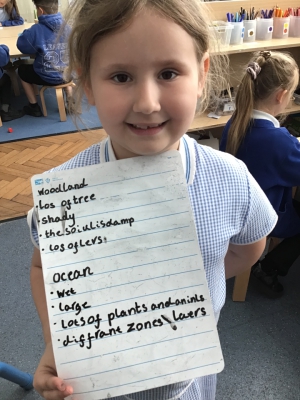 woodland
· los of tree
· shady
· the soiul is damp
· los of levs
ocean
· wet
· large
· lots of plants and animls
· diffrant zones \ laers